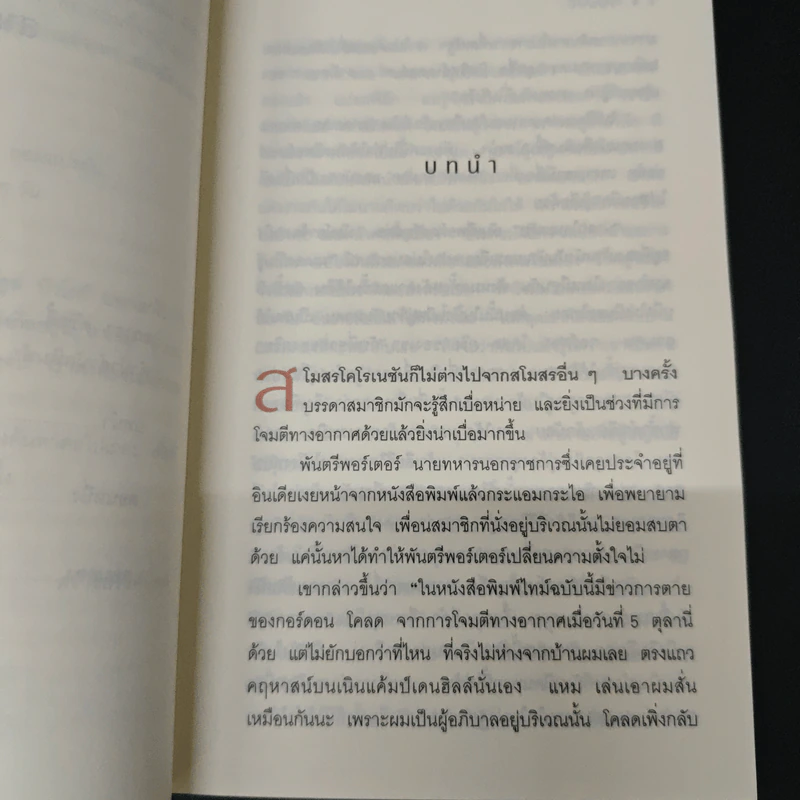 บทนำ
สโมสรโคโรเนชันก็ไม่ต่างไปจากสโมสรอื่น ๆ บางครั้ง
บรรดาสมาชิกมักจะรู้สึกเบื่อหน่าย และยิ่งเป็นช่วงที่มีการ
โจมตีทางอากาศด้วยแล้วยิ่งน่าเบื่อมากขึ้น
พันตรีพอร์เตอร์ นายทหารนอกราชการซึ่งเคยประจำอยู่ที่
อินเดียเงยหน้าจากหนังสือพิมพ์แล้วกระแอมกระไอ เพื่อพยายาม
เรียกร้องความสนใจ เพื่อนสมาชิกที่นั่งอยู่บริเวณนั้นไม่ยอมสบตา
ด้วย แค่นั้นหาได้ทำให้พันตรีพอร์เตอร์เปลี่ยนความตั้งใจไม่
เขากล่าวขึ้นว่า “ในหนังสือพิมพ์ไทม์ฉบับนี้มีข่าวการตาย
ของกอร์ดอน โคลด จากการโจมตีทางอากาศเมื่อวันที่ 5 ตุลานี่
ด้วย แต่ไม่ยักบอกว่าที่ไหน ที่จริงไม่ห่างจากบ้านผมเลย ตรงแถว
คฤหาสน์บนเนินแค้มป์เดนฮิลล์นั่นเอง แหม เล่นเอาผมสั่น
เหมือนกันนะ เพราะผมเป็นผู้อภิบาลอยู่บริเวณนั้น โคลดเพิ่งกลับ